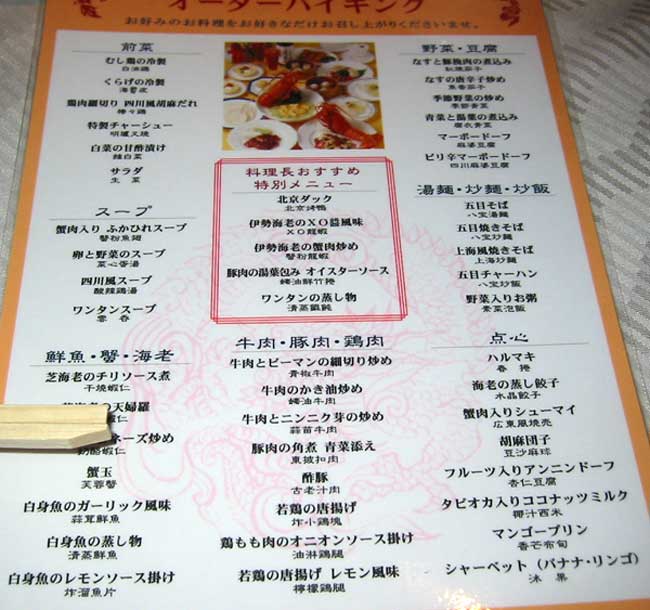 オーダーバイキング
お好みのお料理をお好きなだけお召し上がりくださいませ。
前菜
むし鶏の冷製
白油鶏
くらげの冷製
海蜇皮
鶏肉細切り 四川風胡麻だれ
棒々鶏
特製チャーシュー
明爐叉焼
白菜の甘酢漬け
辣白菜
サラダ
生菜
スープ
蟹肉入り ふかひれスープ
蟹粉魚翅
卵と野菜のスープ
菜心蛋湯
四川風スープ
酸辣鶏湯
ワンタンスープ
雲呑
鮮魚・蟹・海老
芝海老のチリソース煮
干焼蝦仁
の天婦羅
蝦仁
ネーズ炒め
蝦仁
蟹玉
芙蓉蟹
白身魚のガーリック風味
蒜茸鮮魚
白身魚の蒸し物
清蒸鮮魚
白身魚のレモンソース掛け
炸溜魚片
料理長おすすめ
特別メニュー
北京ダック
北京烤鴨
伊勢海老のXO醤風味
XO龍蝦
伊勢海老の蟹肉炒め
蟹粉龍蝦
豚肉の湯葉包み オイスターソース
蠔油鮮竹捲
ワンタンの蒸し物
清蒸餛飩
牛肉・豚肉・鶏肉
牛肉とピーマンの細切り炒め
青椒牛肉
牛肉のかき油炒め
蠔油牛肉
牛肉とニンニク芽の炒め
蒜苗牛肉
豚肉の角煮 青菜添え
東坡扣肉
酢豚
古老汁肉
若鶏の唐揚げ
炸小鶏塊
鶏もも肉のオニオンソース掛け
油淋鶏腿
若鶏の唐揚げ レモン風味
檸檬鶏腿
野菜・豆腐
なすと豚挽肉の煮込み
なすの唐辛子炒め
魚香茄子
季節野菜の炒め
季節青菜
青菜と湯葉の煮込み
腐衣青菜
マーボードーフ
麻婆豆腐
ピリ辛マーボードーフ
四川麻婆豆腐
湯麺・炒麺・炒飯
五目そば
八宝湯麺
五目焼きそば
八宝炒麺
上海風焼きそば
上海炒麺
五目チャーハン
八宝炒飯
野菜入りお粥
素菜泡飯
点心
ハルマキ
春捲
海老の蒸し餃子
水晶餃子
蟹肉入りシューマイ
広東風焼売
胡麻団子
豆沙麻球
フルーツ入りアンニンドーフ
杏仁豆腐
タピオカ入りココナッツミルク
椰汁西米
マンゴープリン
香芒布甸
シャーベット（バナナ・リンゴ）
氷果